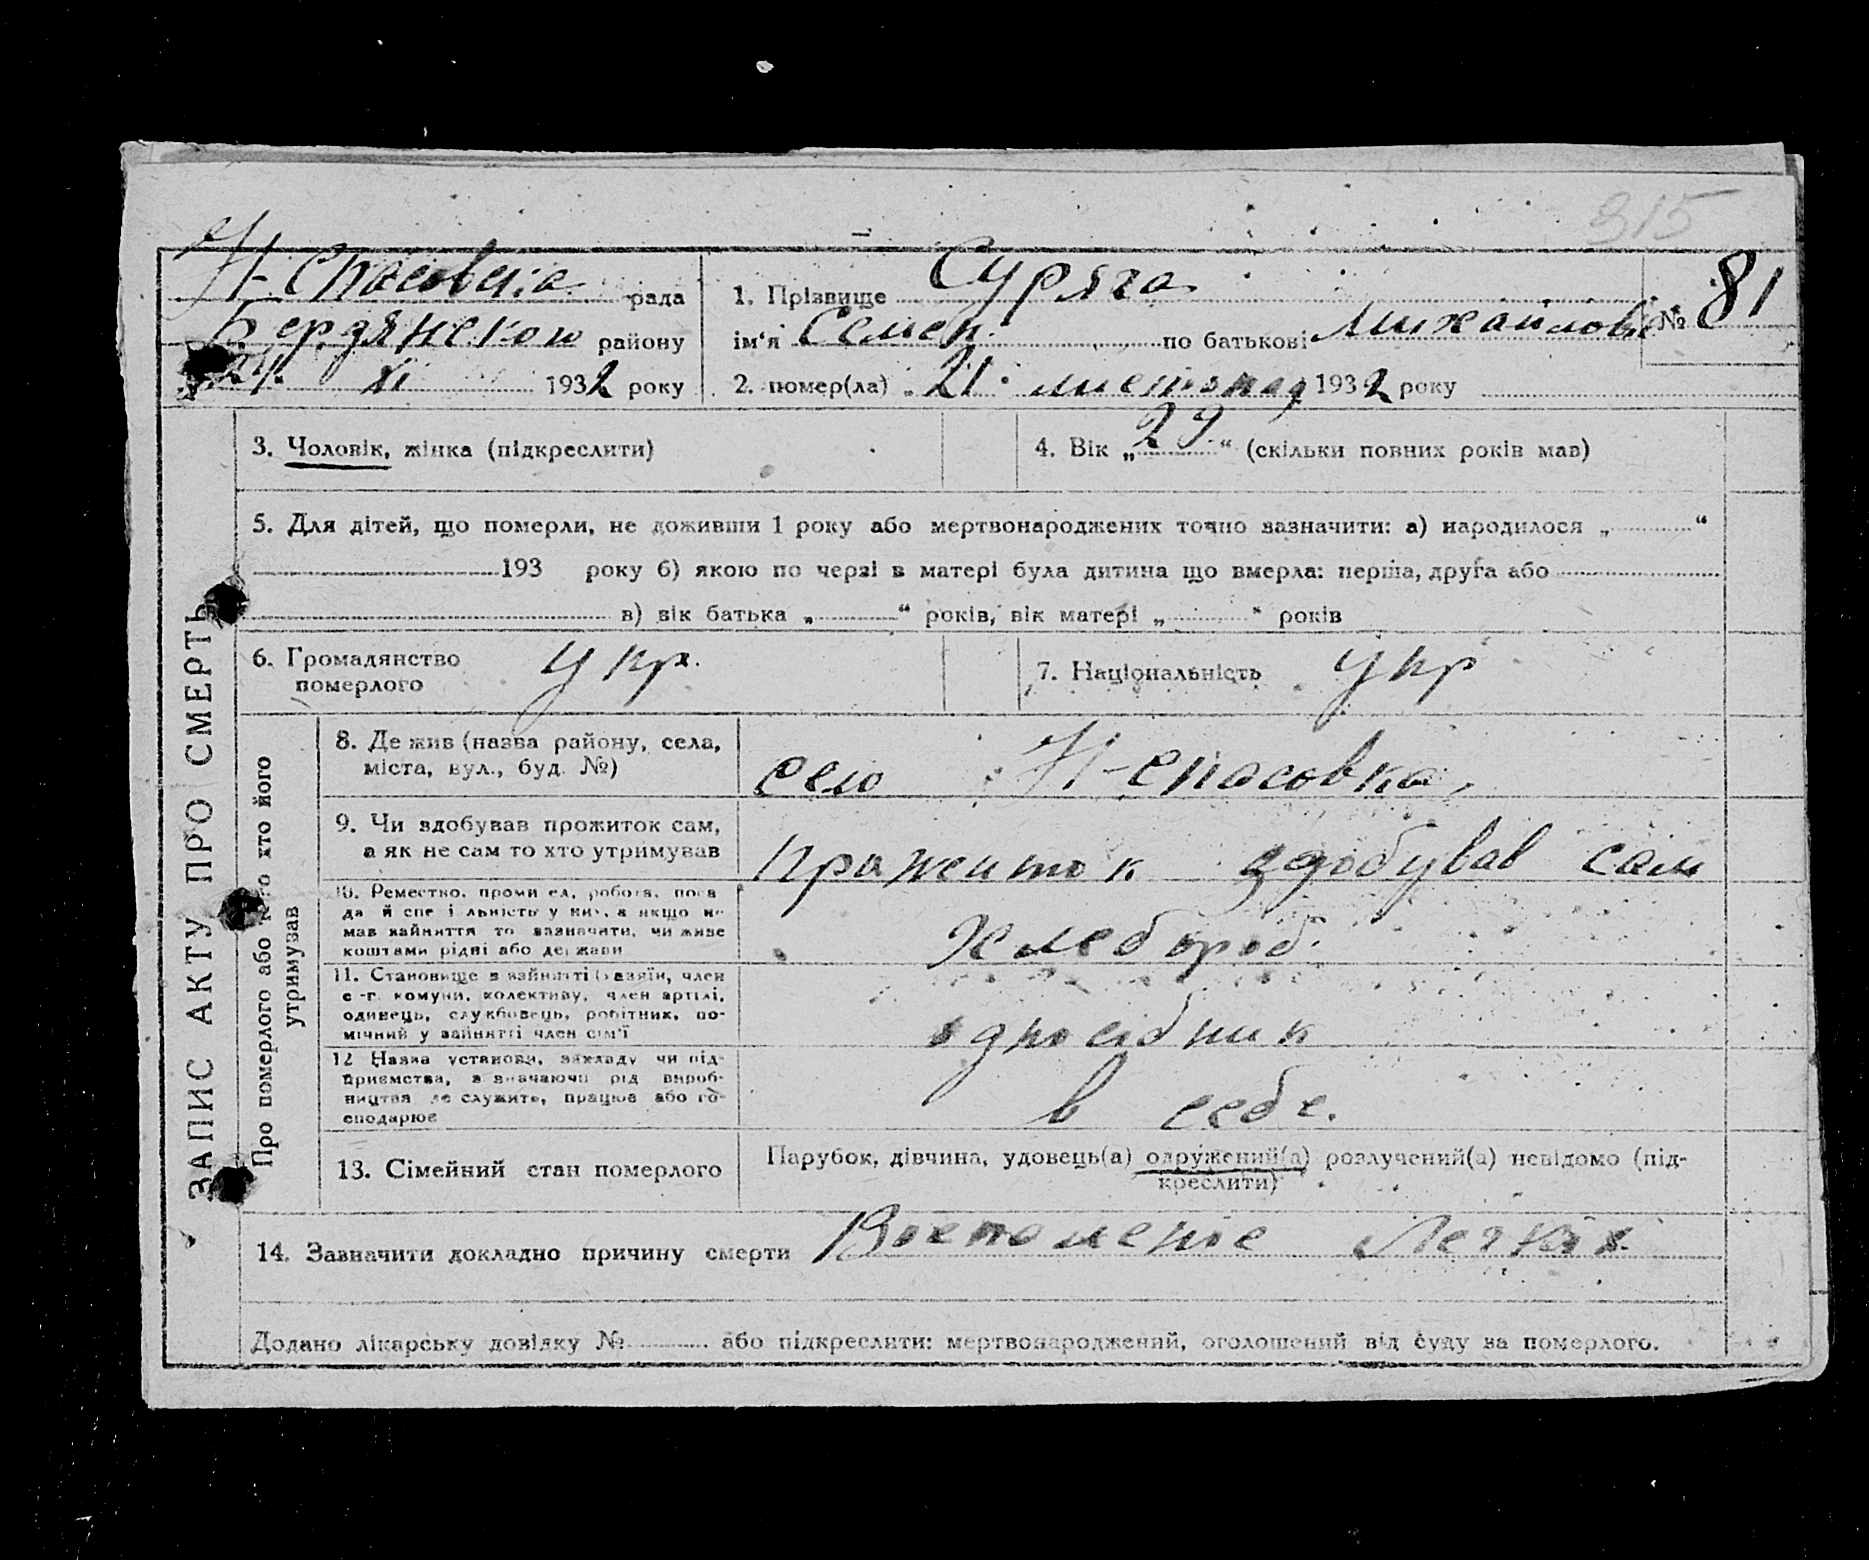 315
Н-Спасовска рада
Бердянском району
24 XI 1932 року
1. Прізвище Суряга
ім'я Семен по батькові Михайлов
№ 81
2. помер(ла) 21 листопад 1932 року
ЗАПИС АКТУ ПРО СМЕРТЬ
3. Чоловік, жінка (підкреслити)
4. Вік „29“ (скільки повних років мав)
5. Для дітей, що померли, не доживши 1 року або мертвонароджених точно зазначити: а) народилося „ “
193 року б) якою по черзі в матері була дитина що вмерла: перша, друга або
в) вік батька „ “ років, вік матері „ “ років
6. Громадянство
померлого укр.
7. Національність укр
Про померлого або хто його
утримував
8. Де жив (назва району, села,
міста, вул., буд. №)
село Н-спасовка,
9. Чи здобував прожиток сам,
а як не сам то хто утримував
Прожиток здобував сам
10. Ремество, промисел, робота, поса
да й спеціяльність у них, а якщо не
мав зайняття то зазначити, чи живе
коштами рідні або держави
Хлебороб
11. Становище в зайнятті (хазяїн, член
с-г. комуни, колективу, член артілі,
одинець, службовець, робітник, по-
мічний у зайнятті член сім'ї
односібник
12 Назва установи, закладу чи під-
приємства, зазначаючи рід вироб-
ництва де служить, працює або го-
сподарює
в себе.
13. Сімейний стан померлого
Парубок, дівчина, удовець(а) одружений(а) розлучений(а) невідомо (під-
креслити)
14. Зазначити докладно причину смерти Легких
Додано лікарську довідку № або підкреслити: мертвонароджений, оголошений від суду за померлого.